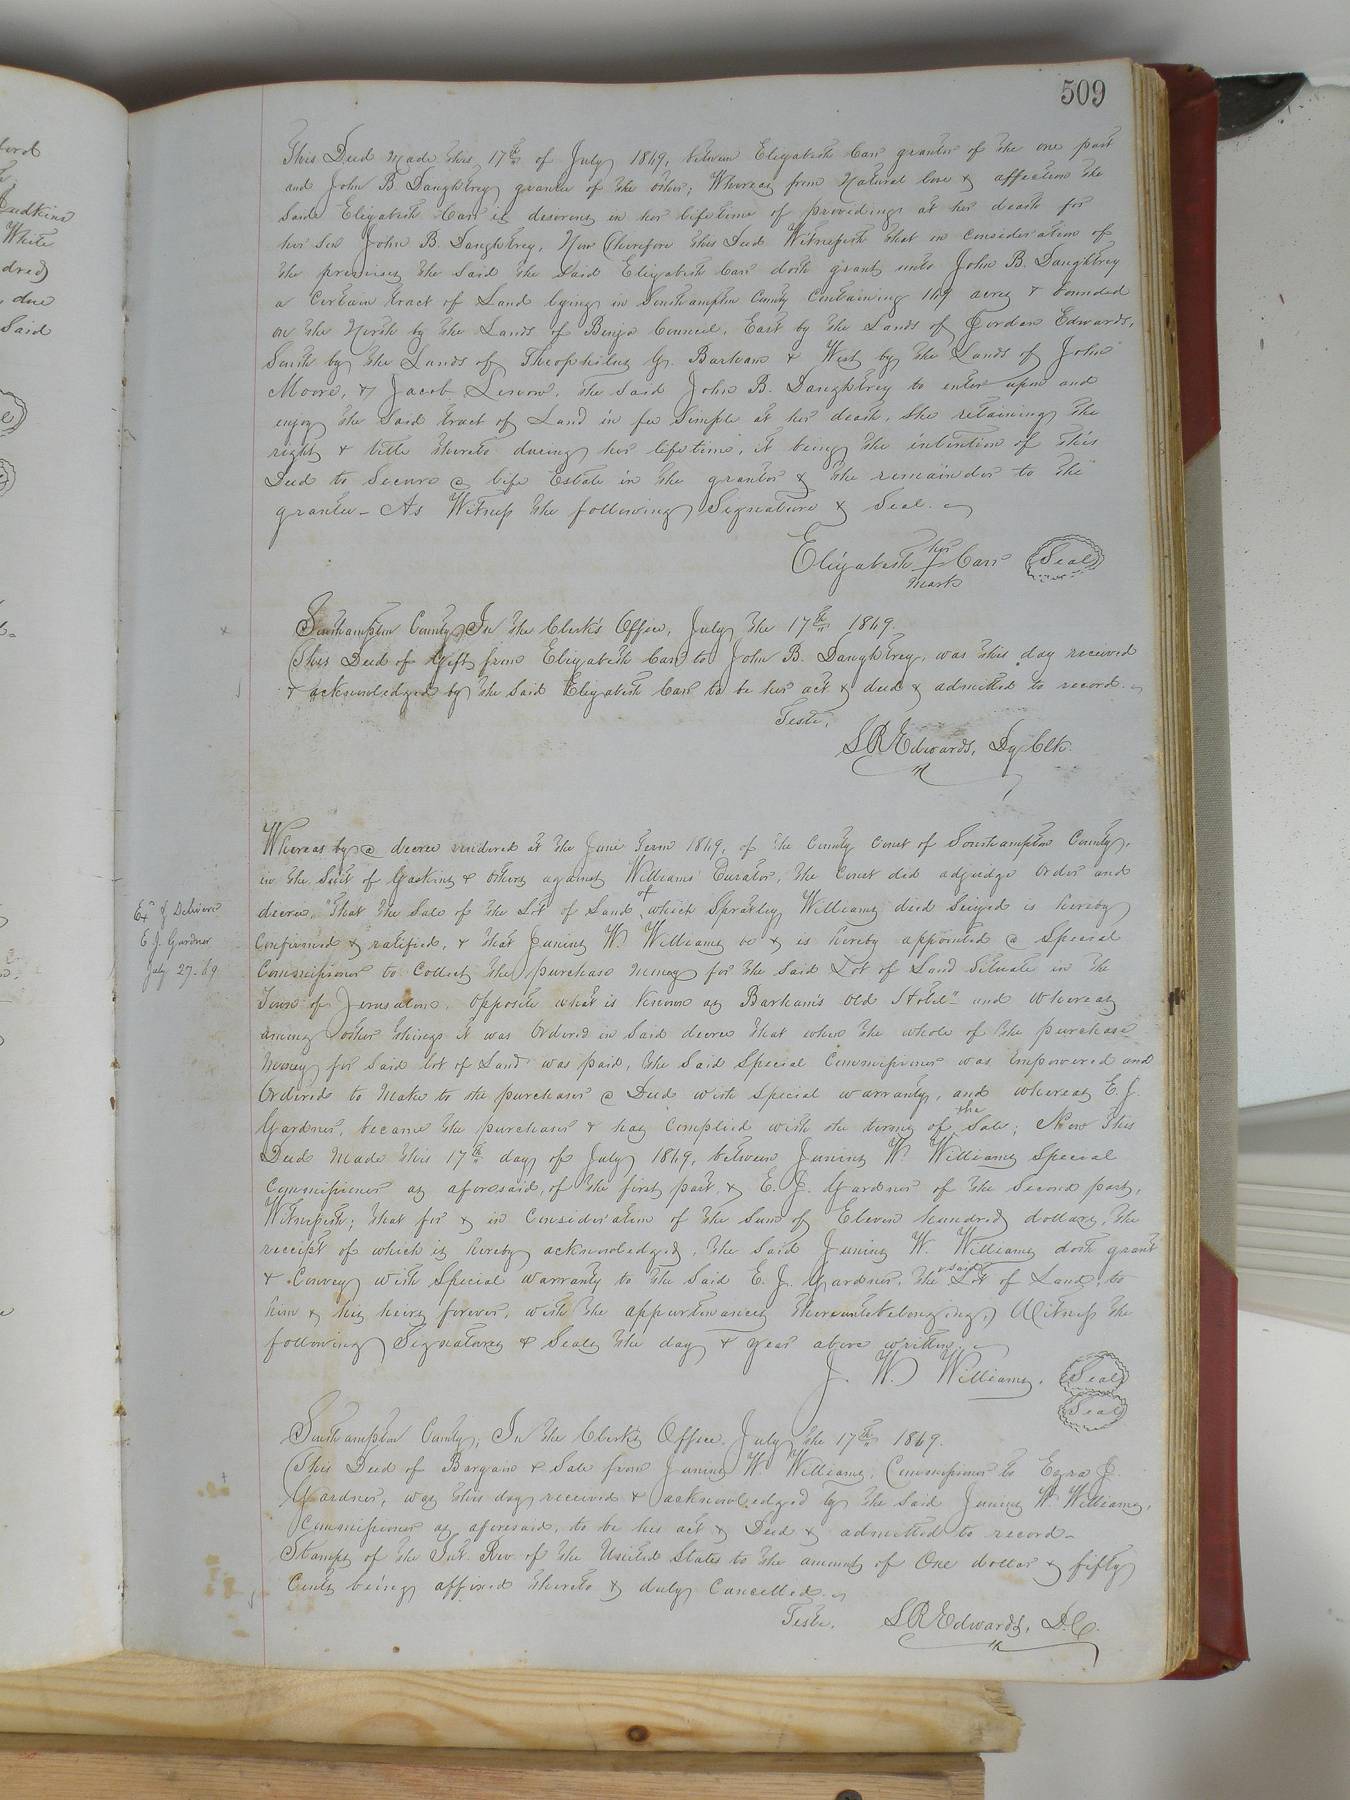 509
This Deed Made this 17th of July 1869, between Elizabeth Carr grantor of the one part
and John B. Daughtrey grantee of the other; Whereas from Natural love & affection the
said Elizabeth Carr is desirous in her lifetime of providing at her death for
her Son John B. Daughtrey, Now Therefore this Deed Witnesseth that in consideration of
the premises the said the said Elizabeth Carr doth grant unto John B. Daughtrey
a Certain tract of Land lying in Southampton County Containing 149 acres & bounded
on the North by the Lands of Benja Council, East by the Lands of Jordan Edwards,
South by the Lands of Theophilus G. Barham & West by the Lands of John
Moore, & Jacob the said John B. Daughtrey to enter upon and
enjoy the said tract of Land in fee Simple at her death, She retaining the
right & title thereto during her life time, it being the intention of this
Deed to Secure a life Estate in the grantor & the remainder to the
grantee – As Witness the following Signature & Seal.
Elizabeth her mark Carr Seal
Southampton County, In the Clerk's Office, July the 17th 1869.
This Deed of Gift from Elizabeth Carr to John B. Daughtrey, was this day received
& acknowledged by the said Elizabeth Carr to be her act & deed & admitted to record.
Teste,
L R Edwards, Dy Clk.
Whereas by a decree rendered at the June Term 1869, of the County Court of Southampton County,
in the Suit of Gaskins & others against Williams' Curator, the Court did adjudge order and
decree, "That the Sale of the Lot of Land of which Spratley Williams died Seized is hereby
Confirmed & ratified, & that Junius W. Williams be & is hereby appointed a Special
Commissioner to Collect the purchase money for the said Lot of Land Situate in the
Town of Jerusalem, opposite what is known as Barham's old Hotel" and whereas
among other things it was Ordered in said decree that when the whole of the purchase
money for said lot of Land was paid, the said Special Commissioner was empowered and
Ordered to Make to the purchaser a Deed with Special warranty, and whereas E. J.
Gardner, became the purchaser & has Complied with the terms of the Sale; Now this
Deed Made this 17th day of July 1869, between Junius W. Williams Special
Commissioner as aforesaid, of the first part, & E. J. Gardner of the Second part,
Witnesseth; that for & in Consideration of the Sum of Eleven hundred dollars, the
receipt of which is hereby acknowledged, the said Junius W. Williams doth grant
& Convey with Special warranty to the said E. J. Gardner, the said Lot of Land, to
him & his heirs forever, with the appurtenances thereunto belonging, Witness the
following Signatures & Seals the day & year above written.
J. W. Williams, Seal
Seal
Ex'd & Deliver'd
E J. Gardner
July 27-69
Southampton County; In the Clerk's Office, July the 17th 1869.
This Deed of Bargain & Sale from Junius W Williams, Commissioner to Ezra J.
Gardner, was this day received & acknowledged by the said Junius W. Williams,
Commissioner as aforesaid, to be his act & Deed & admitted to record –
Stamps of the Int. Rev. of the United States to the amount of One dollar & fifty
Cents being affixed thereto & duly Cancelled.
Teste, L R Edwards, D. C.